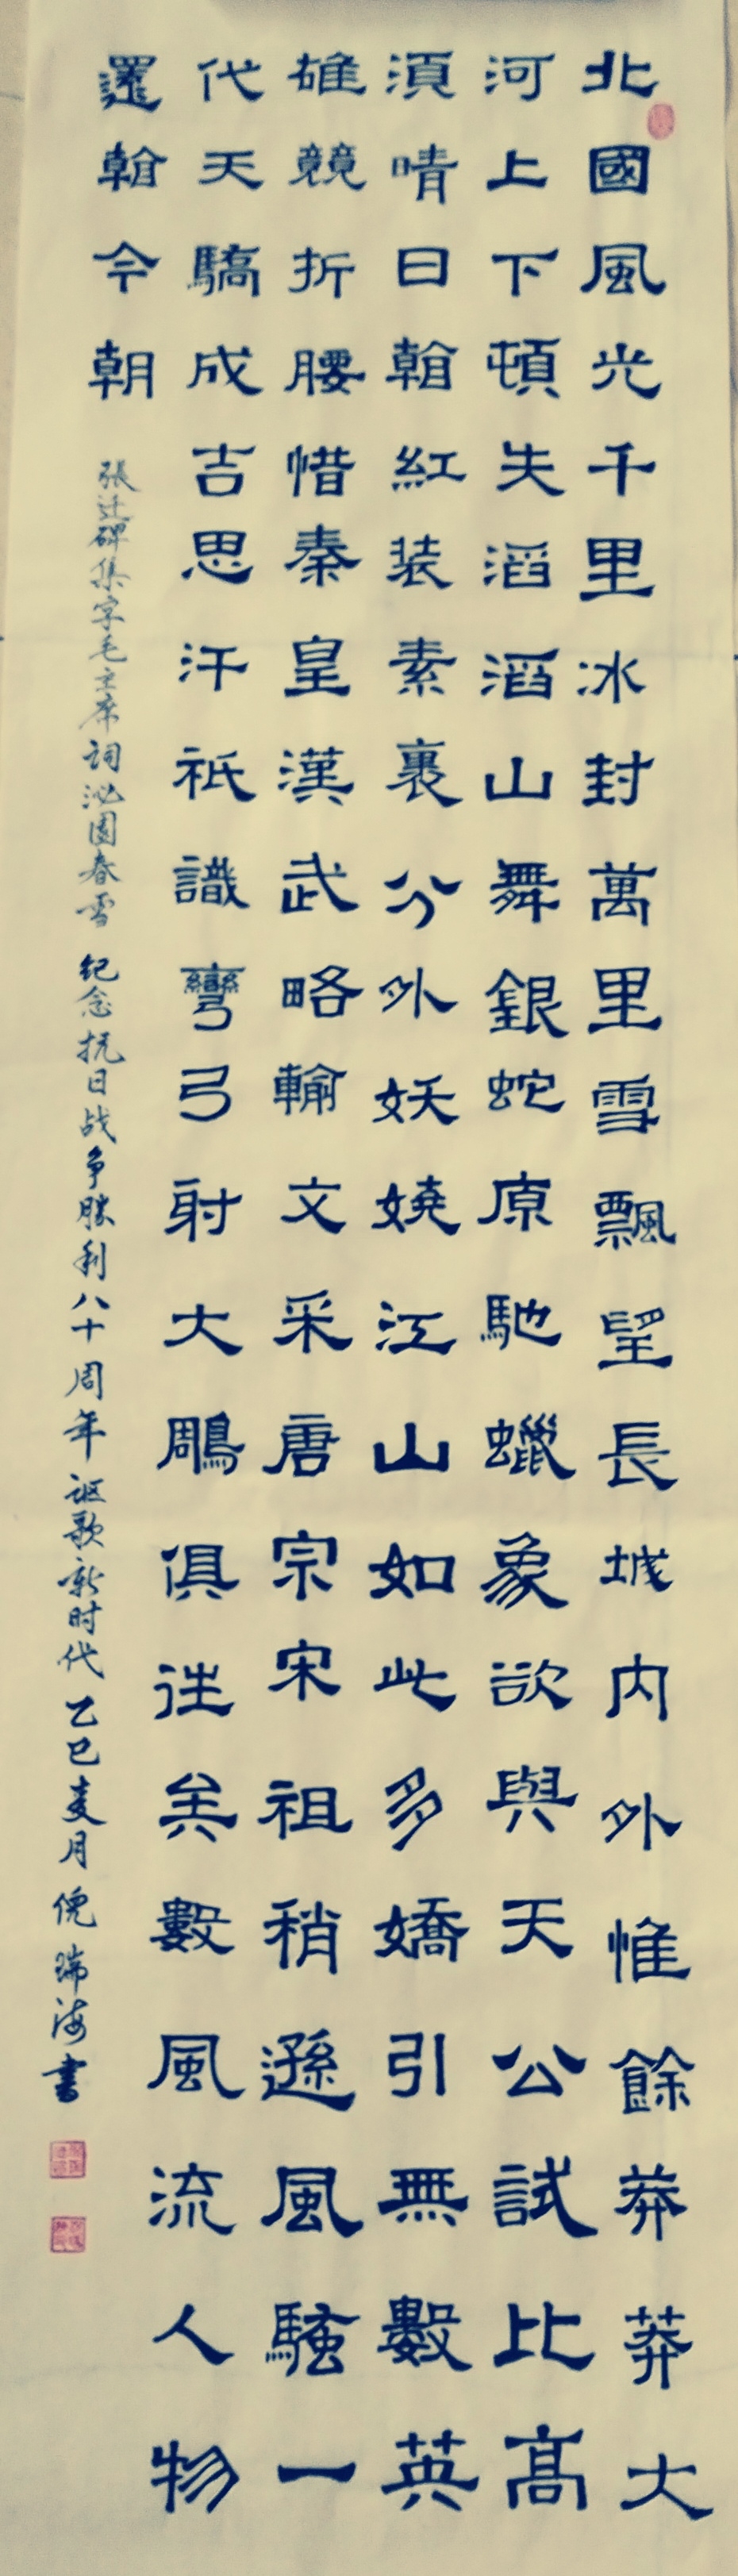 北國風光千里冰封萬里雪飄望長城内外惟餘莽莽大
河上下頓失滔滔山舞銀蛇原馳蠟象欲與天公試比高
須晴日看紅装素裹分外妖嬈江山如此多嬌引無數英
雄競折腰惜秦皇漢武略輸文采唐宗宋祖稍遜風騷一
代天驕成吉思汗祇識彎弓射大鵰俱往矣數風流人物
還看今朝
張迁碑集字毛主席詞沁園春雪 纪念抗日战争勝利八十周年 讴歌新时代 乙巳夏月 倪瑞海書